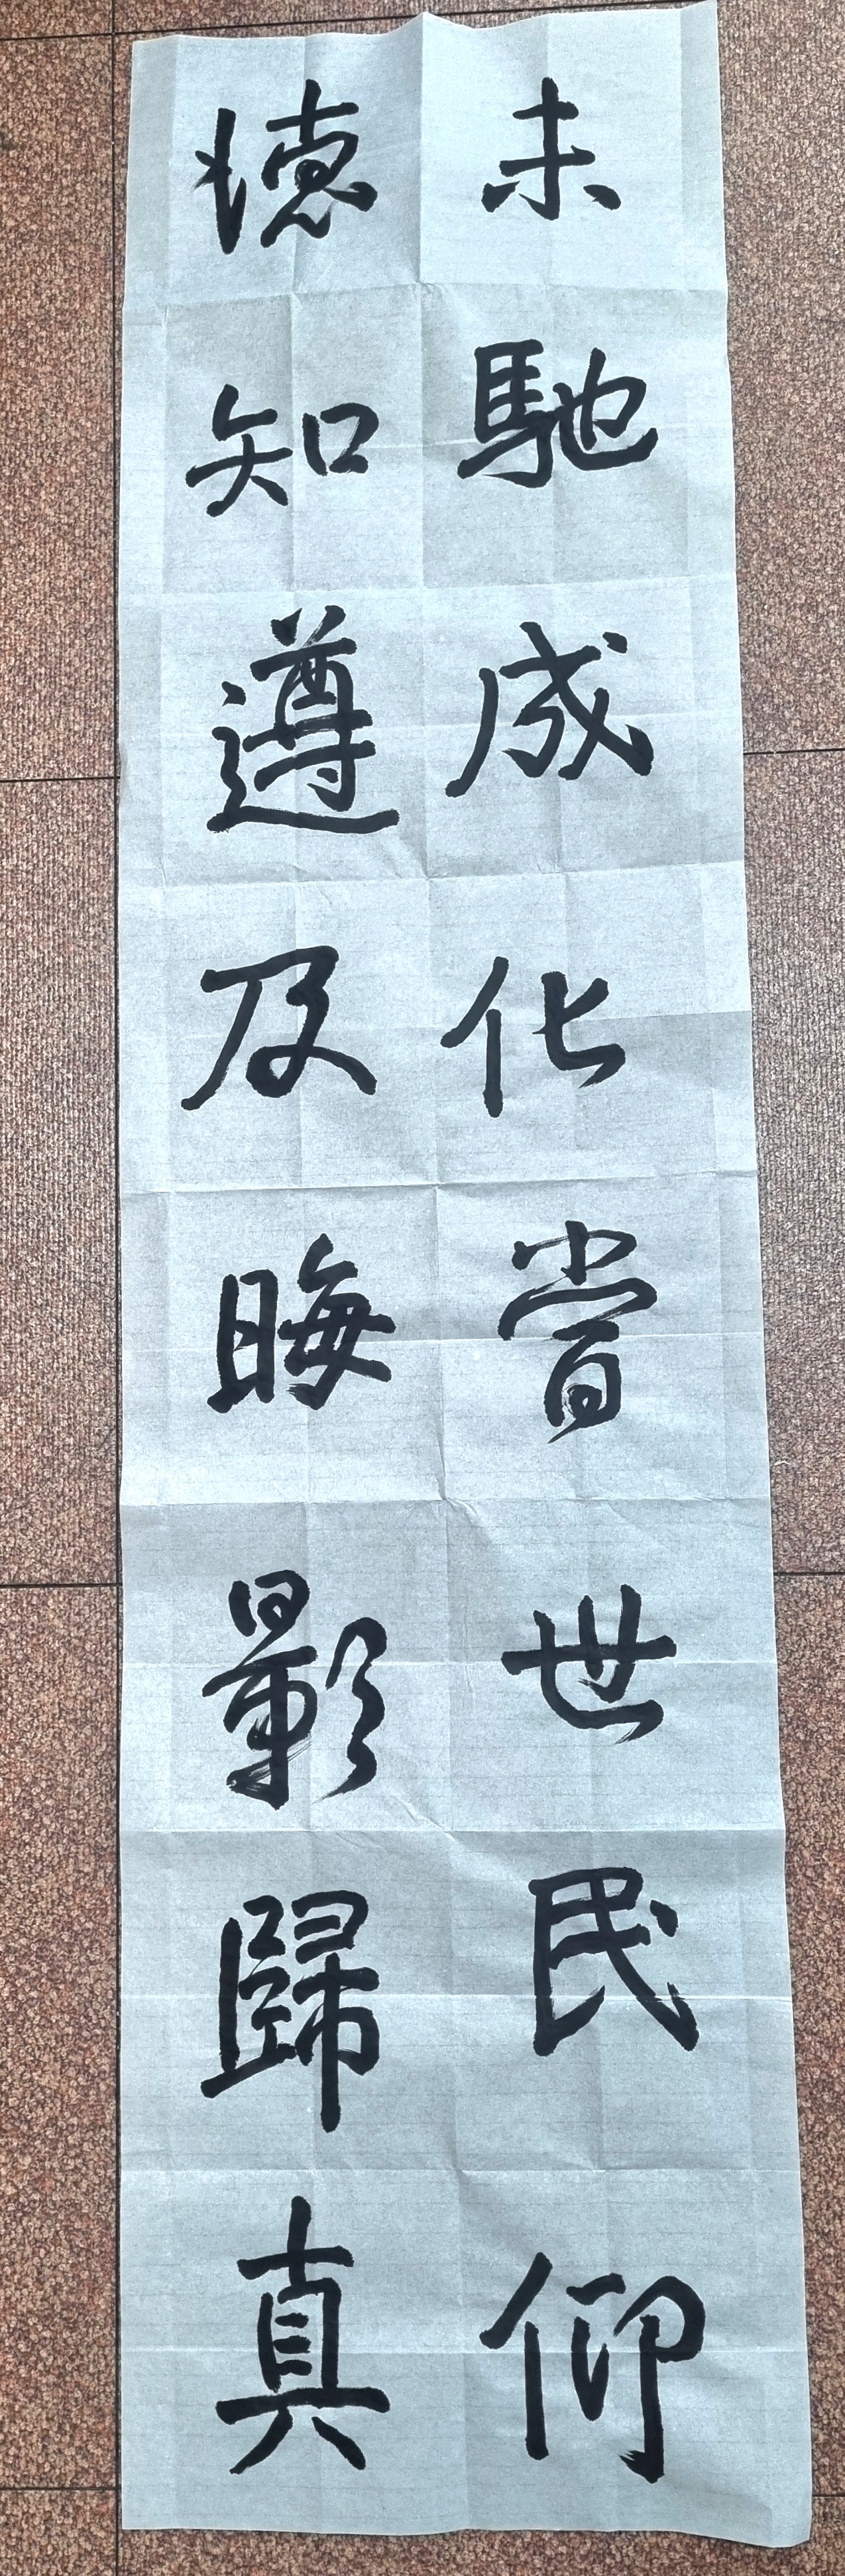 未馳成化當世民仰
德知遵及晦影歸真